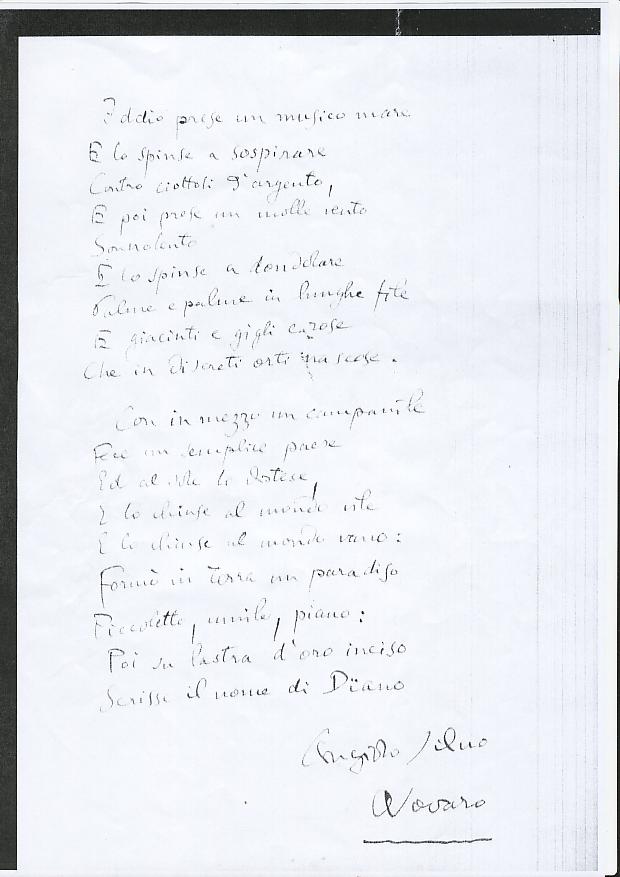 Iddio prese un musico mare
E lo spinse a sospirare
Contro ciottoli d'argento,
E poi prese un molle vento
Sonnolento
E lo spinse a dondolare
Palme e palme in lunghe file
E giacinti e gigli e rose
Che in discreti orti nascose.
Con in mezzo un campanile
Fece un semplice paese
Ed al sole lo distese,
E lo chiuse al mondo vile
E lo chiuse al mondo vano:
Formò in terra un paradiso
Piccoletto, umile, piano:
Poi su lastra d'oro inciso
Scrisse il nome di Diano
Angiolo Silvio
Novaro